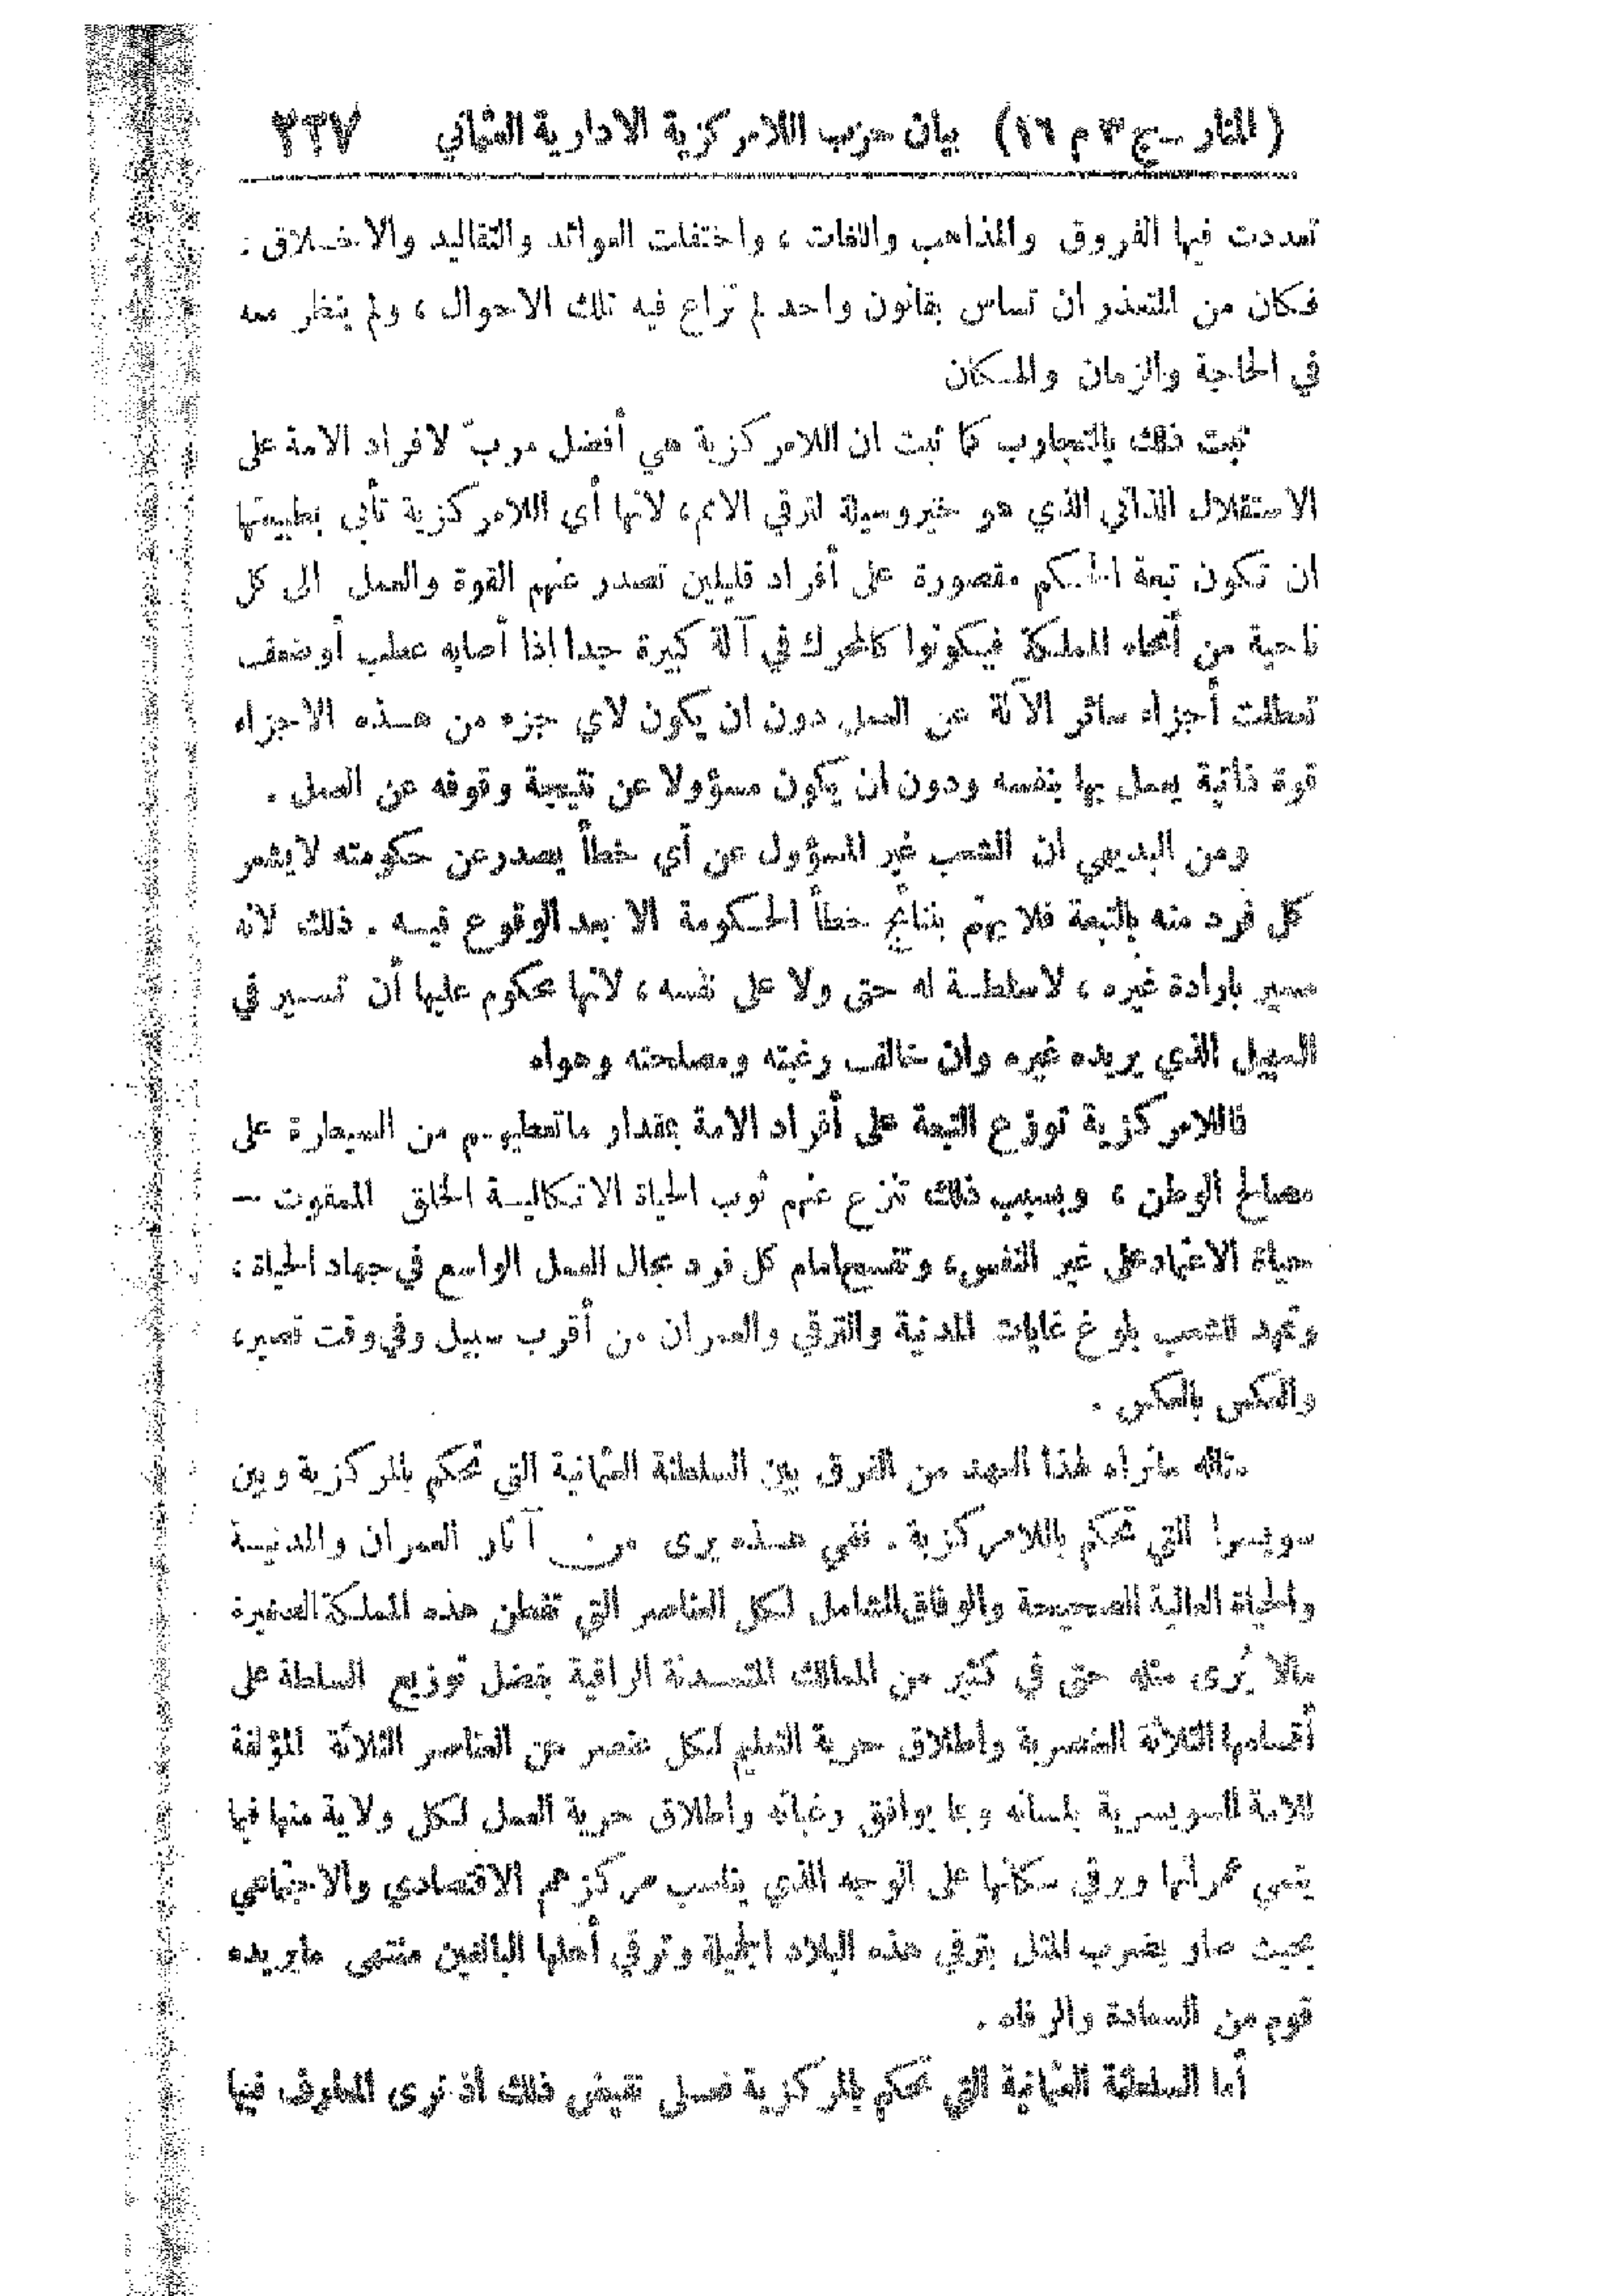 ( المنار – ج ٣ م ١٦ ) بيان حزب اللامركزية الادارية العثماني ٢٢٧
تعددت فيها الفروق والمذاهب واللغات ، واختلفت العوائد والتقاليد والاخلاق :
فكان من المتعذر ان تساس بقانون واحد لم تراع فيه تلك الاحوال ، ولم ينظر معه
في الحاجة والزمان والمكان
ثبت ذلك بالتجارب كما ثبت ان اللامركزية هي أفضل مربّ لافراد الامة على
الاستقلال الذاتي الذي هو خير وسيلة لترقي الامم، لانها أي اللامركزية تأبى بطبيعتها
ان تكون تبعة الحكم مقصورة على أفراد قليلين تصدر عنهم القوة والعمل الى كل
ناحية من أنحاء المملكة فيكونوا كالمحرك في آلة كبيرة جدا اذا أصابه عطب أو ضعف
تعطلت أجزاء سائر الآلة عن العمل دون ان يكون لاي جزء من هذه الاجزاء
قوة ذاتية يعمل بها بنفسه ودون ان يكون مسؤولا عن نتيجة وقوفه عن العمل .
ومن البديهي ان الشعب غير المسؤول عن أي خطأ يصدر عن حكومته لا يشعر
كل فرد منه بالتبعة فلا يهتم بنتائج خطأ الحكومة الا بعد الوقوع فيه . ذلك لانه
مسير بارادة غيره ، لا سلطة له حتى ولا على نفسه ، لانها محكوم عليها أن تسير في
السبيل الذي يريده غيره وان خالف رغبته ومصلحته وهواه
فاللامركزية توزع التبعة على أفراد الامة بمقدار ما تعطيهم من السيطرة على
مصالح الوطن ، وبسبب ذلك تنزع عنهم ثوب الحياة الاتكالية الخلق الممقوت –
حياة الاعتماد على غير النفس، وتفسح امام كل فرد مجال العمل الواسع في جهاد الحياة ،
وتمهد للشعب بلوغ غايات المدنية والترقي والعمران من أقرب سبيل وفي وقت قصير،
والعكس بالعكس .
مثاله ما نراه لهذا العهد من الفرق بين السلطنة العثمانية التي تحكم بالمركزية وبين
سويسرا التي تحكم باللامركزية . ففي هذه يرى من آثار العمران والمدنية
والحياة العالية الصحيحة والوفاق الشامل لكل العناصر التي تقطن هذه المملكة الصغيرة
مالا يُرى مثله حتى في كثير من الممالك المتمدنة الراقية بفضل توزيع السلطة على
أقسامها الثلاثة العنصرية واطلاق حرية التعليم لكل عنصر من العناصر الثلاثة المؤلفة
للامة السويسرية بلسانه وبما يوافق رغباته واطلاق حرية العمل لكل ولاية منها فيما
ينمي عمرانها ويرقي سكانها على الوجه الذي يناسب مركزهم الاقتصادي والاجتماعي
بحيث صار يضرب المثل بترقي هذه البلاد الجميلة وترقي أهلها البالغين منتهى ما يريده
قوم من السعادة والرفاه .
أما السلطنة العثمانية التي تحكم بالمركزية فعلى نقيض ذلك اذ نرى المطوف فيها